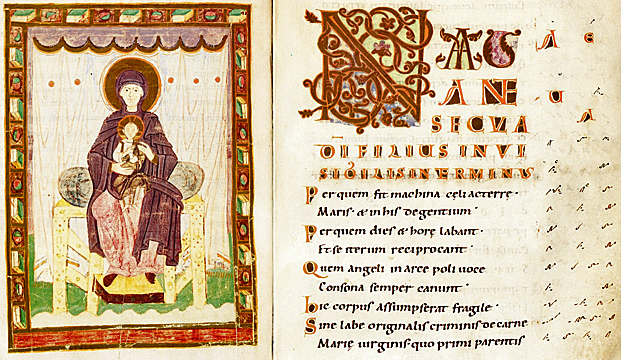 NAT A E
SECVLA
DI FILIUS INVI
SIBILIS INTERMINUS
Per quem fit machina cęli ac terrę·
Maris· & in his degentium·
Per quem dies & horę labant·
Et se iterum reciprocant·
Quem angeli in arce poli voce
Consona semper canunt·
hic corpus assumpserat fragile·
Sine labe originalis criminis de carne
Marię virginis quo primi parentis